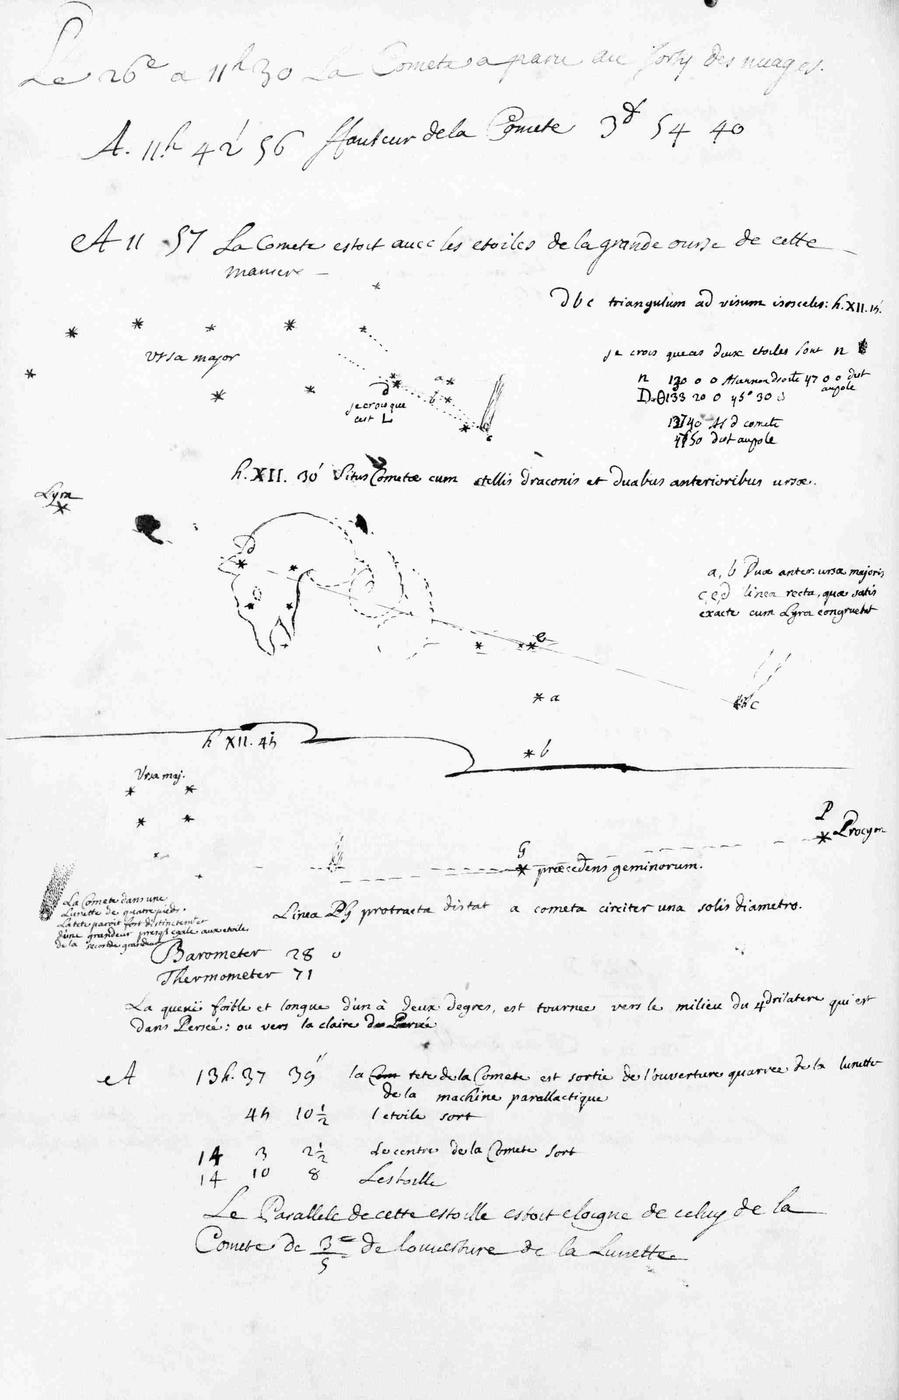 Le 26e a 11h 30 La Comete a paru au sorty des nuages.
A. 11h 42' 56 Hauteur de la Comete 3d 54 40
A 11 57 La Comete estoit avec les etoiles de la grande ourse de cette
maniere
d b c triangulum ad visum isosceles: h. XII. 15'
je crois que as deux etoiles sont n
Ursa major
a
n 130 0 0 Ascension droite 47 0 0 dist
au pole
d
b
D. θ 133 20 0 45° 30 0
je crois que
cest L
c
137 40 As d comete
dist au pole
h. XII. 30' Situs Cometæ cum stellis draconis et duabus anterioribus ursæ.
Lyra
d
a, b Duæ anter. ursæ majoris
c, e, d linea recta, quæ satis
exacte cum Lyra congruebat
e
a
c
h XII. 45
b
Ursa maj.
P
Procyon
G
præcedens geminorum.
La Comete dans une
Lunette de quatre pieds.
La tete paroit fort distinctemt et
d'une grandeur presq. egale aux etoiles
de la seconde grandeur
Linea PG protracta distat a cometa circiter una solis diametro.
Barometer 28 0
Thermometer 71
La queuë foible et longue d'un à deux degres, est tournee vers le milieu du 4drilatere qui est
dans Persée: ou vers la claire de Persée
A 13h. 37 39" la Com tete de la Comete est sortie de l'ouverture quarree de la lunette
de la machine parallactique
45 10 1/2 l'etoile sort
14 3 2 1/2 Le centre de la Comete sort
14 10 8 L'estoille
Le Parallele de cette estoille estoit eloigne de celuy de la
Comete de 3e/5 de louverture de la Lunette.